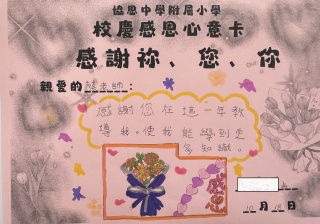 協恩中學附屬小學
校慶感恩心意卡
感謝祢、您、你
親愛的 老師：
感謝您在這一年教
導我。使我能學到更
多知識。
月 日